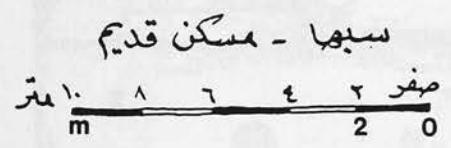 سبها - مسكن قديم
صفر ٢ ٤ ٦ ٨ ١٠ متر
m 2 0